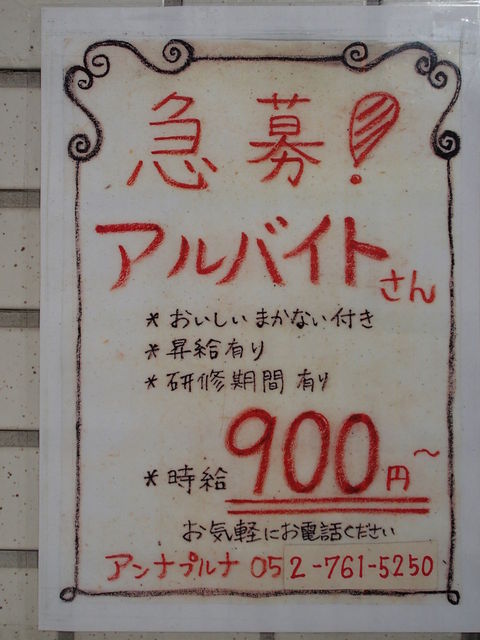 急募!
アルバイトさん
* おいしいまかない付き
* 昇給有り
* 研修期間 有り
* 時給 900円〜
お気軽にお電話ください
アンナプルナ 052-761-5250